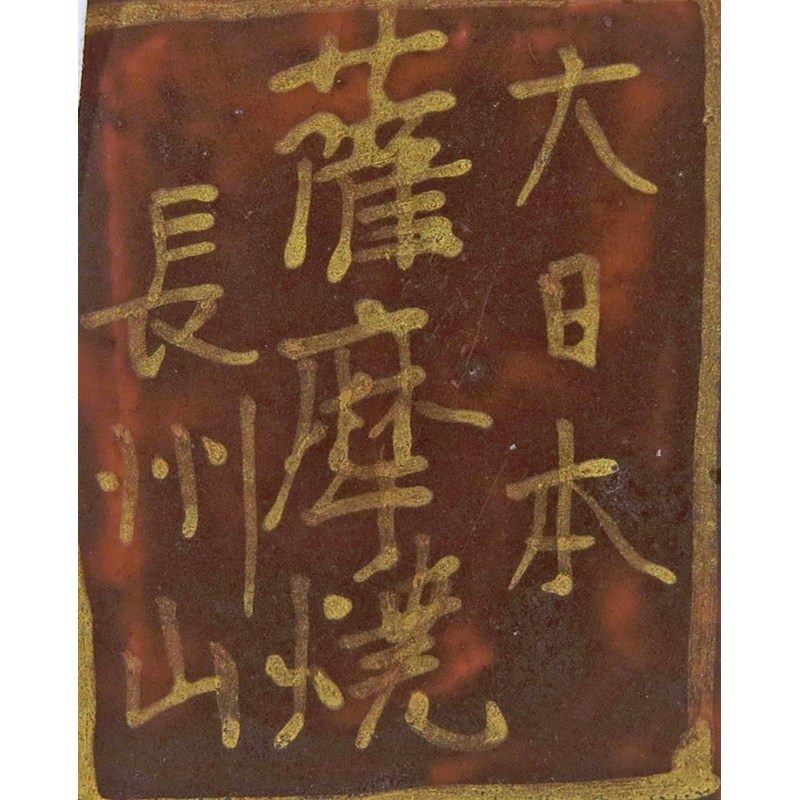 大日本
薩摩焼
長州山